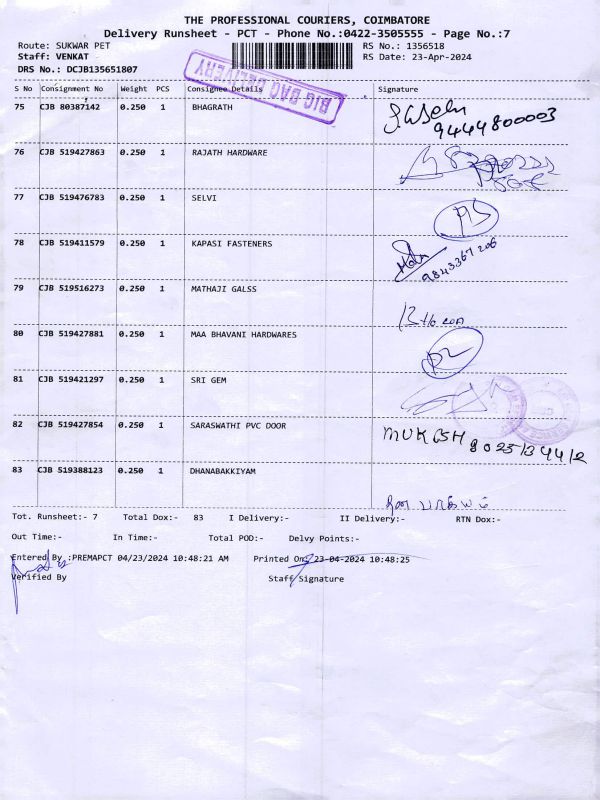 THE PROFESSIONAL COURIERS, COIMBATORE
Delivery Runsheet - PCT - Phone No.:0422-3505555 - Page No.:7
Route: SUKWAR PET RS No.: 1356518
Staff: VENKAT RS Date: 23-Apr-2024
DRS No.: DCJB135651807
BIG BAG DELIVERY
S No Consignment No Weight PCS Consignee Details Signature
75 CJB 80387142 0.250 1 BHAGRATH
9444800003
76 CJB 519427863 0.250 1 RAJATH HARDWARE
77 CJB 519476783 0.250 1 SELVI
78 CJB 519411579 0.250 1 KAPASI FASTENERS
9843367206
79 CJB 519516273 0.250 1 MATHAJI GALSS
80 CJB 519427881 0.250 1 MAA BHAVANI HARDWARES
81 CJB 519421297 0.250 1 SRI GEM
82 CJB 519427854 0.250 1 SARASWATHI PVC DOOR
MUKESH
83 CJB 519388123 0.250 1 DHANABAKKIYAM
Tot. Runsheet:- 7 Total Dox:- 83 I Delivery:- II Delivery:- RTN Dox:-
Out Time:- In Time:- Total POD:- Delvy Points:-
Entered By :PREMAPCT 04/23/2024 10:48:21 AM Printed On: 23-04-2024 10:48:25
Verified By Staff Signature